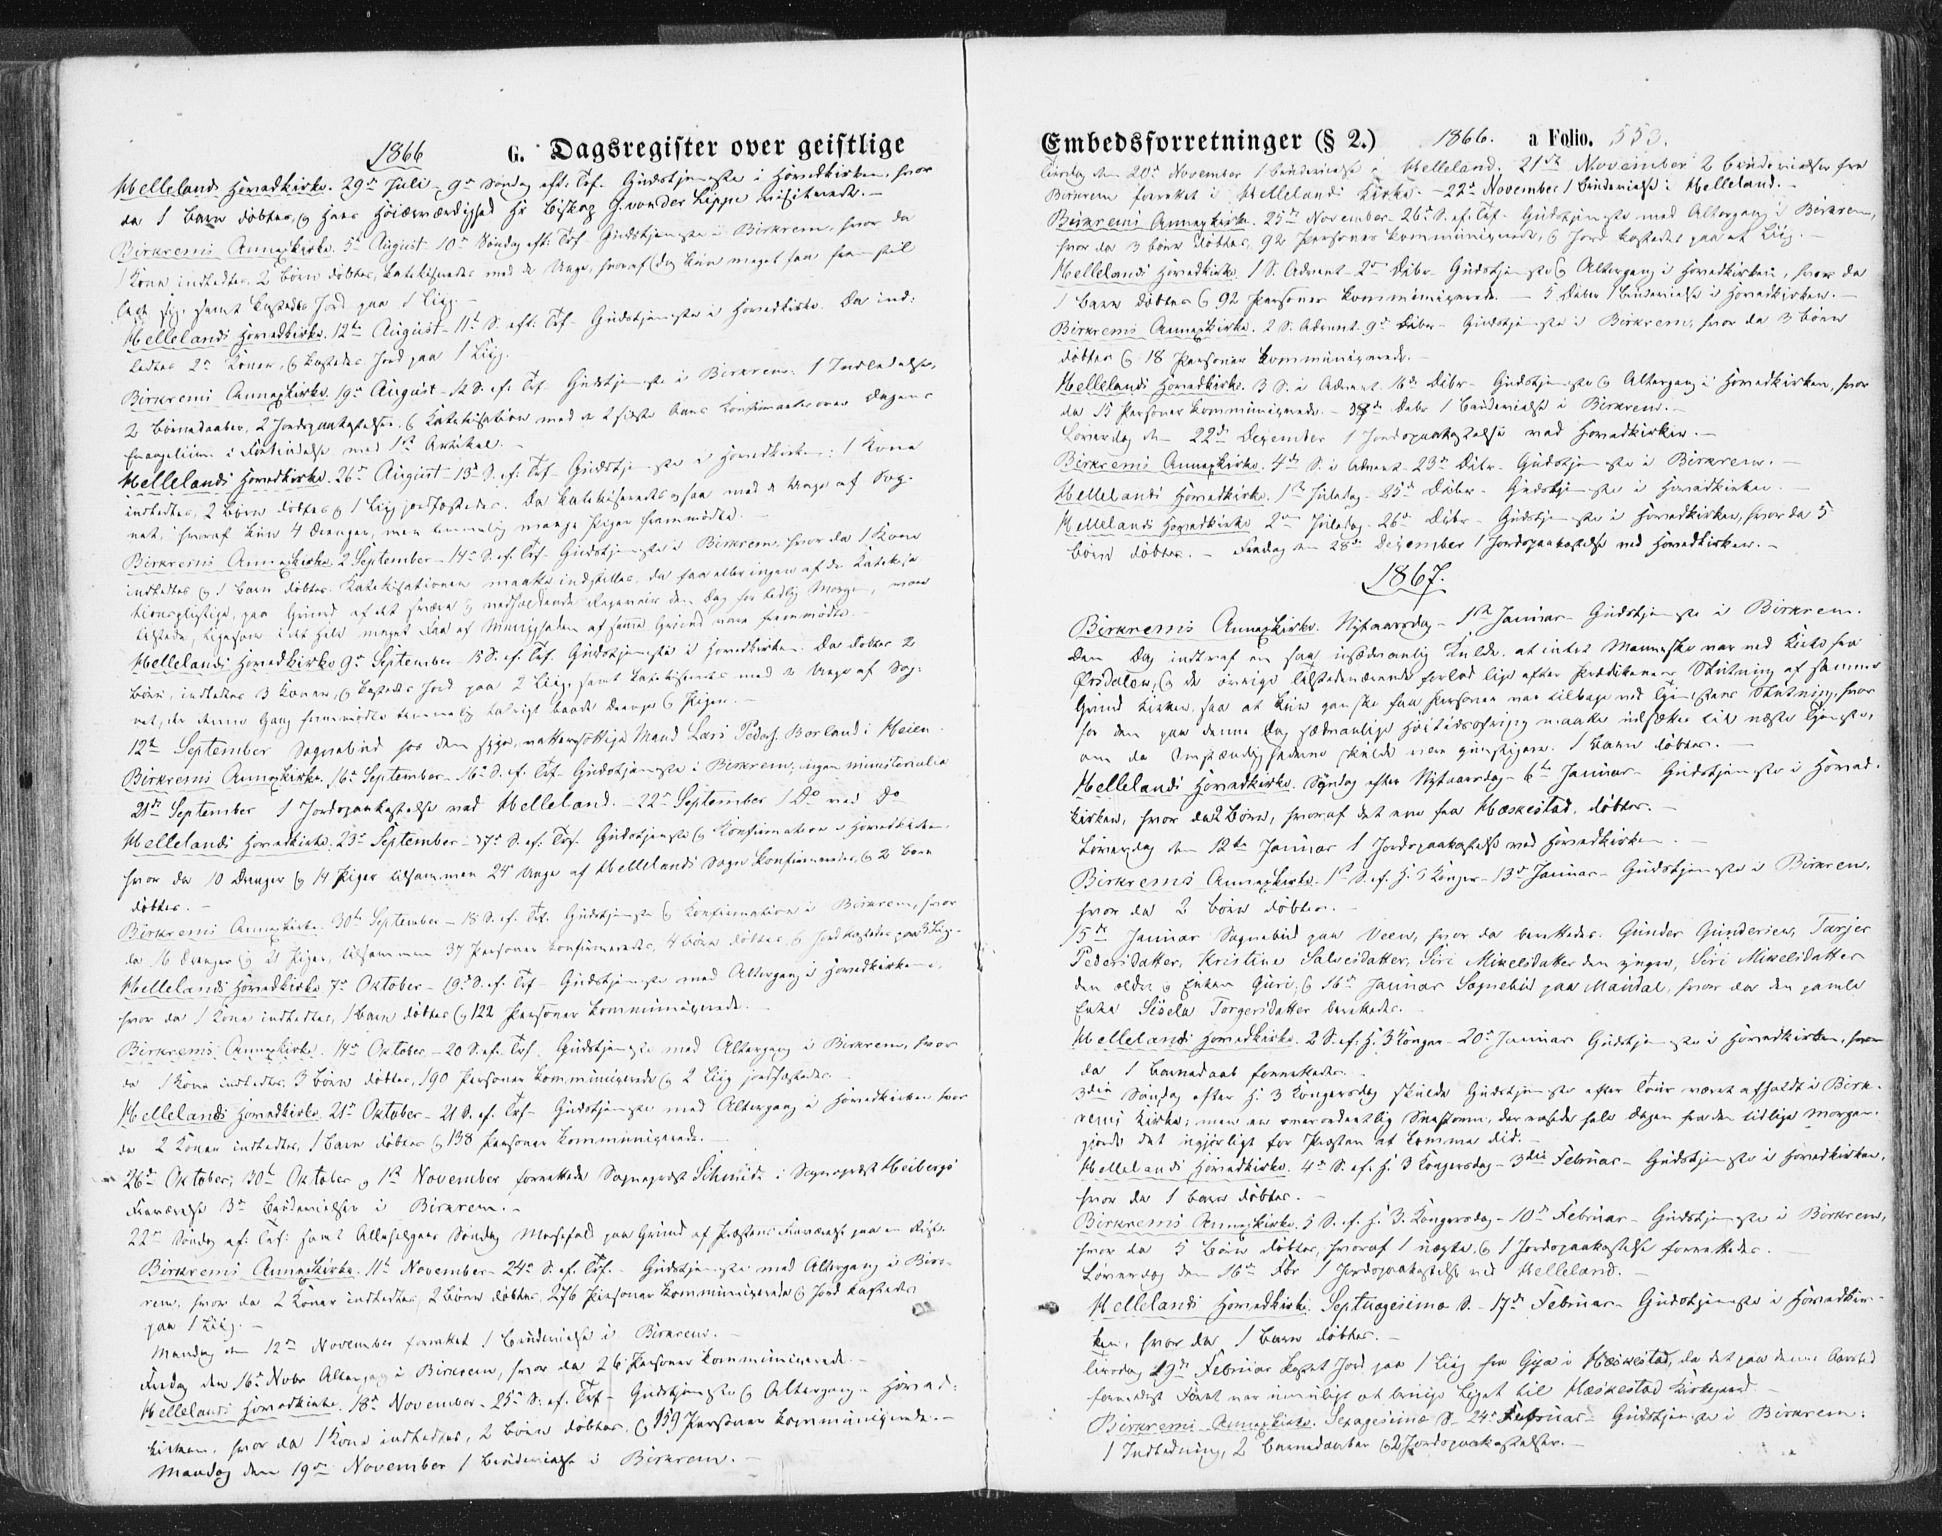 1866 G. Dagsregister over geistlige
Hellelands Hovedkirke. 29de Juli - 9de Søndag eft: Tref. Gudstjeneste i Hovedkirken, hvor
da 1 Barn døbtes, og Hans Høiærværdighed Hr Biskop J. von der Lippe visiterede. -
Birkrems Annexkirke. 5te August - 10de Søndag eft: Tref. Gudstjeneste i Birkrem, hvor da
1 Kone indledtes, 2 Børn døbtes, katekiseredes med de Unge, hvoraf dog kun meget faa havde ind-
samt kastedes Jord paa 1 Liig. -
Hellelands Hovedkirke. 12te August - 11te S. eft: Tref. Gudstjeneste i Hovedkirke. Da ind:
ledtes 2de Koner, og kastedes Jord paa 1 Liig.
Birkrems Annexkirke. 19de August - 12 S. ef. Tref. Gudstjeneste i Birkrem: 1 Indledelse,
2 Børnedaaber, 2 Jordspaakastelser & Katekisation med de Konfirmerede over Dagens
Evangelium i Forbindelse med 1ste Artikel. -
Hellelands Hovedkirke. 26de August - 13de S. ef: Tref. Gudstjeneste i Hovedkirken: 1 Kone
indledtes, 2 Børn døbtes og 1 Liig jordfæstedes. Da katekiseredes ogsaa med de Unge af Sog-
net, hvoraf kun 4 Drenge, men temmelig mange Piger fremmødte. -
Birkrems Annexkirke. 2 September - 14de S. ef. Tref. Gudstjeneste i Birkrem, hvor da 1 Kone
indledtes og 1 Barn døbtes. Katekisationen maatte indstilles, da faa eller ingen af de Katekisa-
tionspligtige, paa Grund af det svære og vedholdende Regnveir den Dag fra tidlig Morgen, vare
tilstede, ligesom i det Hele meget Faa af Menigheden af samme Grund vare fremmødte. -
Hellelands Hovedkirke 9de September - 15 S. ef. Tref. Gudstjeneste i Hovedkirken. Da døbtes 2
Børn, indledtes 3 Koner, og kastedes Jord paa 2 Liig, samt katekiseredes med de Unge af Sog-
net, der denne Gang fremmødte temmelig talrigt baade Drenge & Piger. -
12te September Sognebud hos den syge, vattersottige Mand Lars Peders. Borland i Heien.
Birkrems Annexkirke. 16de September - 16de S. ef. Tref. Gudstjeneste i Birkrem; ingen ministerialia
21de September 1 Jordspaakastelse ved Helleland. - 22de September 1 Do ved Do
Hellelands Hovedkirke. 23de September - 17de S. ef. Tref. Gudstjeneste og Konfirmation i Hovedkirken,
hvor da 10 Drenge og 14 Piger tilsammen 24 Unge af Hellelands Sogn konfirmeredes, & 2 Børn
døbtes. -
Birkrems Annexkirke. 30te September - 18 S. ef. Tref. Gudstjeneste og Konfirmation i Birkrem, hvor
da 16 Drenge og 21 Piger, tilsammen 37 Personer konfirmeredes, 4 Børn døbtes, & Jord kastedes paa 3 Liig.
Hellelands Hovedkirke 7de Oktober - 19de S. ef. Tref. Gudstjeneste med Altergang i Hovedkirken,
hvor da 1 Kone indledtes, 1 Barn døbtes og 122 Personer kommunicerede.
Birkrems Annexkirke. 14de Oktober - 20 S. ef. Tref. Gudstjeneste med Altergang i Birkrem, hvor
da 1 Kone indledtes, 3 Børn døbtes, 190 Personer kommunicerede og 2 Liig jordfæstedes.
Hellelands Hovedkirke. 21de Oktober - 21 S. ef. Tref. Gudstjeneste med Altergang i Hovedkirken hvor
da 2 Koner indledtes, 1 Barn døbtes og 138 Personer kommunicerede.
26de Oktober, 30te Oktober og 1ste November forrettede Sognepræst Schmidt i Sognepræst Heibergs
Fraværelse 3de Brudevielser i Birkrem. -
22de Søndag ef. Tref: samt Allehelgens Søndag Messefald paa Grund af Præstens Fraværelse paa en Reise.
Birkrems Annexkirke. 11te November - 24de S. ef. Tref. - Gudstjeneste med Altergang i Birk-
rem, hvor da 2 Koner indledtes, 2 Børn døbtes, 276 Personer kommunicerede & Jord kastedes
paa 1 Liig. -
Mandag den 12te November forrettet 1 Brudevielse i Birkrem. -
Fredag den 16de Novbr Altergang i Birkrem, hvor da 26 Personer kommunicerede. -
Hellelands Hovedkirke. 18de November - 25de S. ef. Tref - Gudstjeneste & Altergang i Hoved-
kirken, hvor da 1 Kone indledtes, 2 Børn døbtes, & 159 Personer kommunicerede. -
Mandag den 19de November 1 Brudevielse i Birkrem. -
Embedsforretninger (§ 2.) 1866. a Folio. 553.
Tirsdag den 20de November 1 Brudevielse i Helleland. 21de November 2 Brudevielser fra
Birkrem forrettet i Hellelands Kirke. - 22de November 1 Brudevielse i Helleland. -
Birkrems Annexkirke. 25de November - 26de S. ef. Tref. Gudstjeneste med Altergang i Birkrem,
hvor da 3 Børn døbtes, 92 Personer kommunicerede, & Jord kastedes paa et Liig. -
Hellelands Hovedkirke. 1 S. Advent - 2den Decbr Gudstjeneste & Altergang i Hovedkirken, hvor da
1 Barn døbtes & 92 Personer kommunicerede. - 5 Decbr 1 Brudevielse i Hovedkirken. -
Birkrems Annexkirke. 2 S. Advent - 9de Decbr - Gudstjeneste i Birkrem, hvor da 3 Børn
døbtes & 18 Personer kommunicerede. -
Hellelands Hovedkirke. 3 S. i Advent. 16de Decbr - Gudstjeneste & Altergang i Hovedkirken, hvor
da 15 Personer kommunicerede. - Decbr 1 Brudevielse i Birkrem. -
Løverdag den 22de Dezember 1 Jordspaakastelse ved Hovedkirken. -
Birkrems Annexkirke. 4de S. i Advent - 23de Decbr - Gudstjeneste i Birkrem. -
Hellelands Hovedkirke. 1ste Juledag - 25de Decbr - Gudstjeneste i Hovedkirken. -
Hellelands Hovedkirke 2den Juledag - 26de Decbr - Gudstjeneste i Hovedkirken, hvor da 5
Børn døbtes. - Fredag den 28de Dezember 1 Jordspaakastelse ved Hovedkirken. -
1867.
Birkrems Annexkirke. Nytaarsdag - 1ste Januar - Gudstjeneste i Birkrem.
Den Dag indtraf en saa usædvanlig Kulde, at intet Menneske var ved Kirke fra
Ørsdalen, & de øvrige Tilstedeværende forlod lige efter Prædikenens Slutning af samme
Grund Kirken, saa at kun ganske faa Personer var tilbage ved Tjenestens Slutning, hvor-
for den paa denne Dag sædvanlige Høitidsofring maatte udsættes til næste Tjeneste,
om da Omstændighederne skulde være gunstigere. 1 Barn døbtes. -
Hellelands Hovedkirke. Søndag efter Nytaarsdag - 6te Januar - Gudstjeneste i Hoved-
kirken, hvor da 2 Børn, hvoraf det ene fra Heskestad, døbtes. -
Løverdag den 12te Januar 1 Jordspaakastelse ved Hovedkirken. -
Birkrems Annexkirke. 1ste S. ef. H. 3 Konger - 13de Januar - Gudstjeneste i Birkrem,
hvor da 2 Børn døbtes. -
15de Januar Sognebud paa Veen, hvor da berettedes Gunder Gundersen, Tarjer
Pedersdatter, Kristine Salvesdatter, Siri Mikelsdatter den yngre, Siri Mikelsdatter
den ældre & Enken Guri; & 16de Januar Sognebud paa Mandal, hvor da den gamle
Enke Sisela Torgersdatter berettedes.
Hellelands Hovedkirke. 2 S. ef. H. 3 Konger - 20de Januar Gudstjeneste i Hovedkirken, hvor
da 1 Barnedaab forrettedes. -
3die Søndag efter H. 3 Kongersdag skulde Gudstjeneste efter Tour været afholdt i Birk-
rems Kirke; men en overordentlig Snestorm, der rasede hele Dagen fra den tidlige Morgen,
gjorde det ugjørligt for Præsten at komme did. -
Hellelands Hovedkirke. 4de S. ef. H. 3 Kongersdag - 3die Februar - Gudstjeneste i Hovedkirken,
hvor da 1 Barn døbtes. -
Birkrems Annexkirke. 5 S. ef. H. 3. Kongersdag - 10de Februar - Gudstjeneste i Birkrem,
hvor da 5 Børn døbtes, hvoraf 1 uægte, & 1 Jordspaakastelse forrettedes.
Løverdag den 16de Fbr 1 Jordspaakastelse ved Helleland. -
Hellelands Hovedkirke. Septuagesima S. - 17de Februar - Gudstjeneste i Hovedkir-
ken, hvor da 1 Barn døbtes. -
Tirsdag 19de Februar kastet Jord paa 1 Liig fra Gya i Heskestad, da det paa denne Aarstid
formedelst Føret var umuligt at bringe Liget til Heskestad Kirkegaard. -
Birkrems Annexkirke. Sexagesima S - 24de Februar - Gudstjeneste i Birkrem:
1 Indledning, 2 Barnedaaber & 2 Jordspaakastelser. -